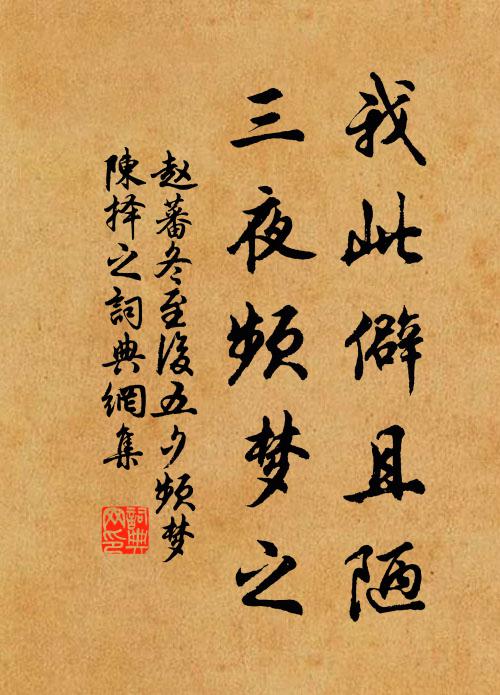 我此僻且陋
三夜频梦之
赵蕃冬至後五夕频梦
陳择之詞典網集
詞典
网印